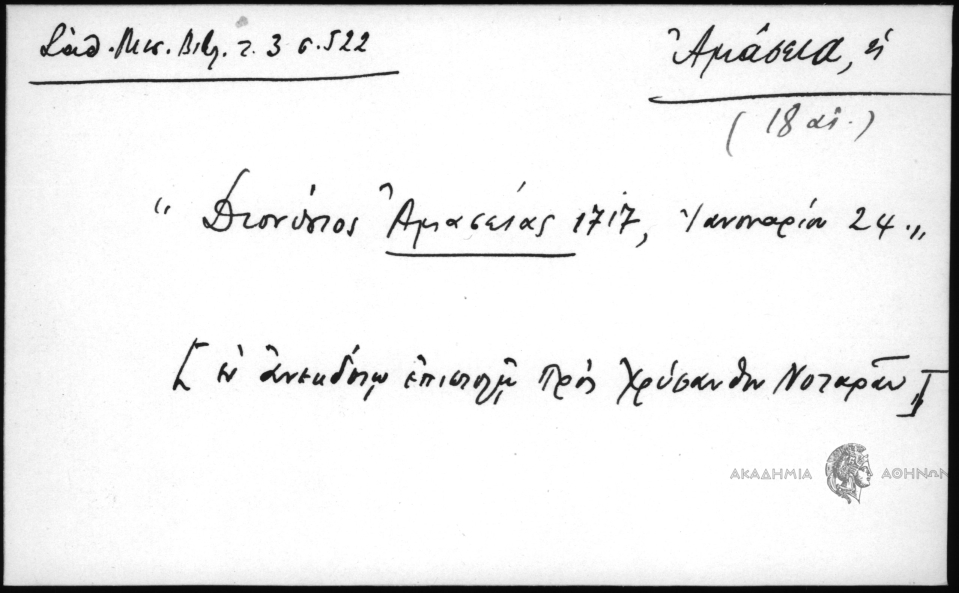 Σάθ. Μεσ. Βιβ. τ. 3 σ. 522
Ἀμάσεια, ἡ
(18 αἰ.)
“ Διονύσιος Ἀμασείας 1717, Ἰανουαρίου 24 „
[ ἐν ἀνεκδότῳ ἐπιστολῇ πρὸς Χρύσανθον Νοταρᾶν ]
ΑΚΑΔΗΜΙΑ ΑΘΗΝΩΝ